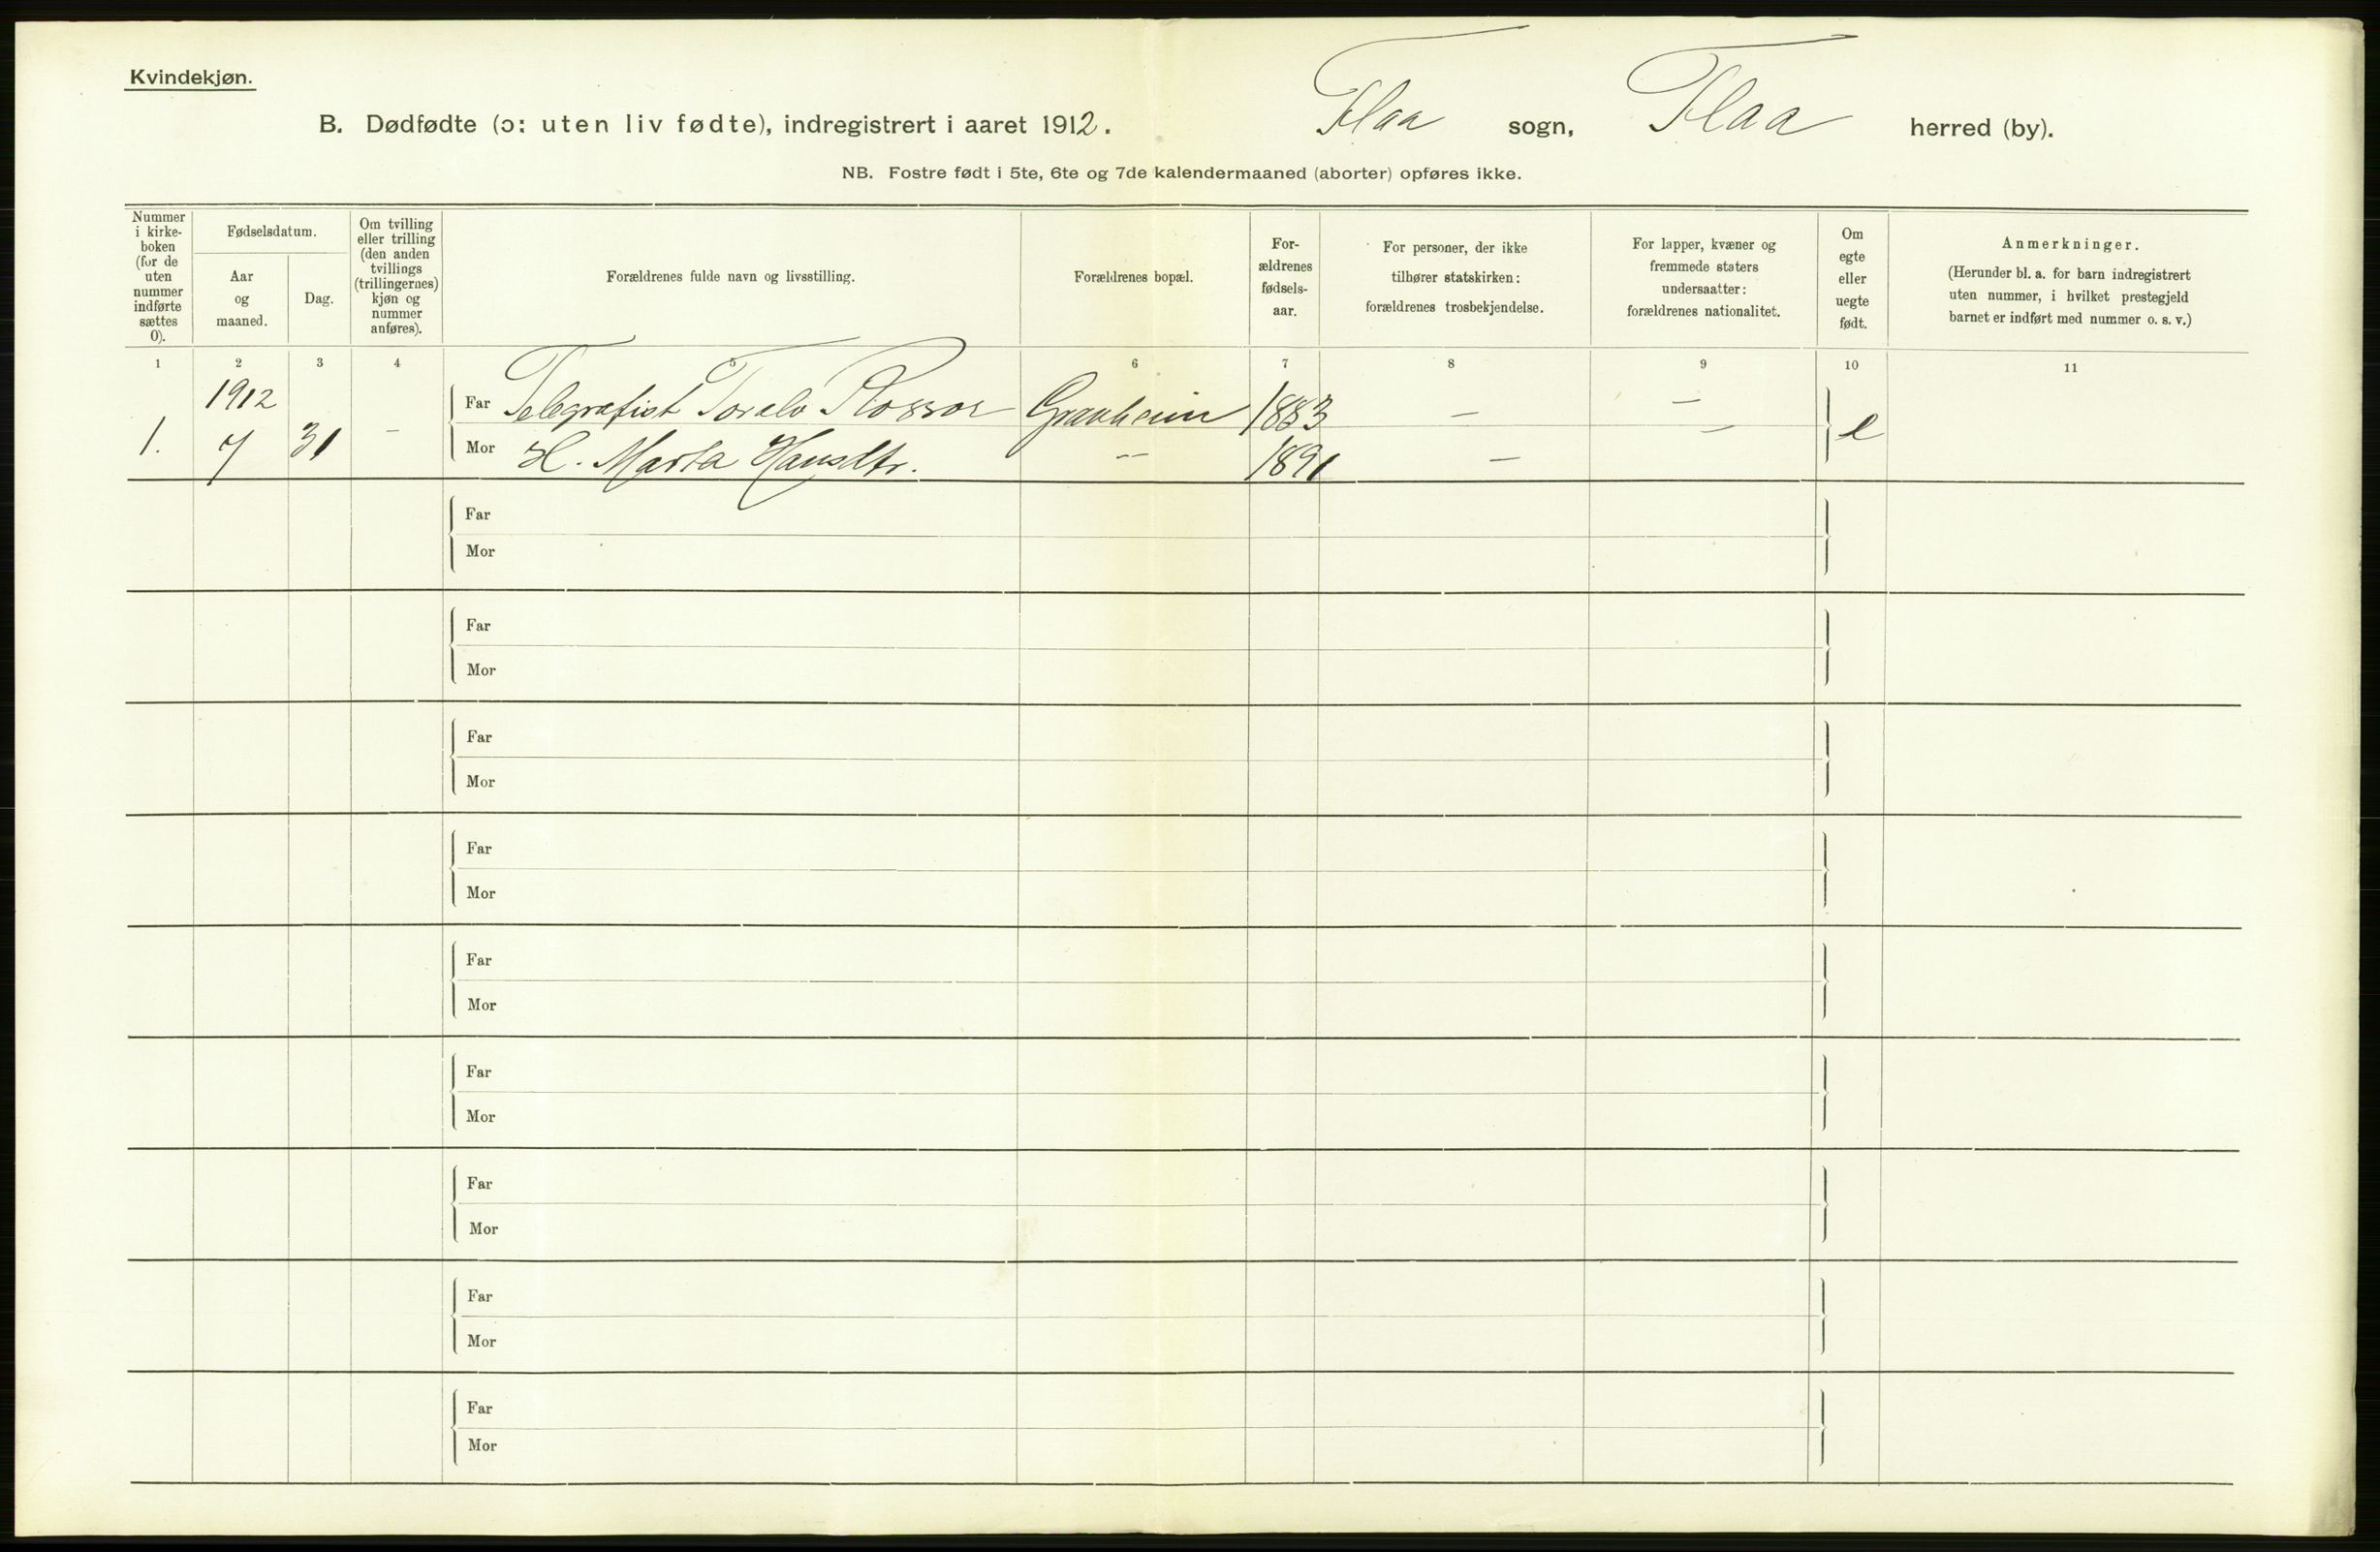 Kvindekjøn.
B. Dødfødte (ɔ: uten liv fødte), indregistrert i aaret 1912. Flaa sogn, Flaa herred (by).
NB. Fostre født i 5te, 6te og 7de kalendermaaned (aborter) opføres ikke.
Nummer
i kirke-
boken
(for de
uten
nummer
indførte
sættes
0).
Fødselsdatum.
Aar
og
maaned.
Dag.
Om tvilling
eller trilling
(den anden
tvillings
(trillingernes)
kjøn og
nummer
anføres).
Forældrenes fulde navn og livsstilling.
Forældrenes bopæl.
For-
ældrenes
fødsels-
aar.
For personer, der ikke
tilhører statskirken:
forældrenes trosbekjendelse.
For lapper, kvæner og
fremmede staters
undersaatter:
forældrenes nationalitet.
Om
egte
eller
uegte
født.
Anmerkninger.
(Herunder bl. a. for barn indregistrert
uten nummer, i hvilket prestegjeld
barnet er indført med nummer o. s. v.)
1 2 3 4 5 6 7 8 9 10 11
1912
Far Telegrafist Toralv Granheim 1883 — —
1. 7 31 — Mor H. Marta Hansdtr. — 1891 — — e
Far
Mor
Far
Mor
Far
Mor
Far
Mor
Far
Mor
Far
Mor
Far
Mor
Far
Mor
Far
Mor